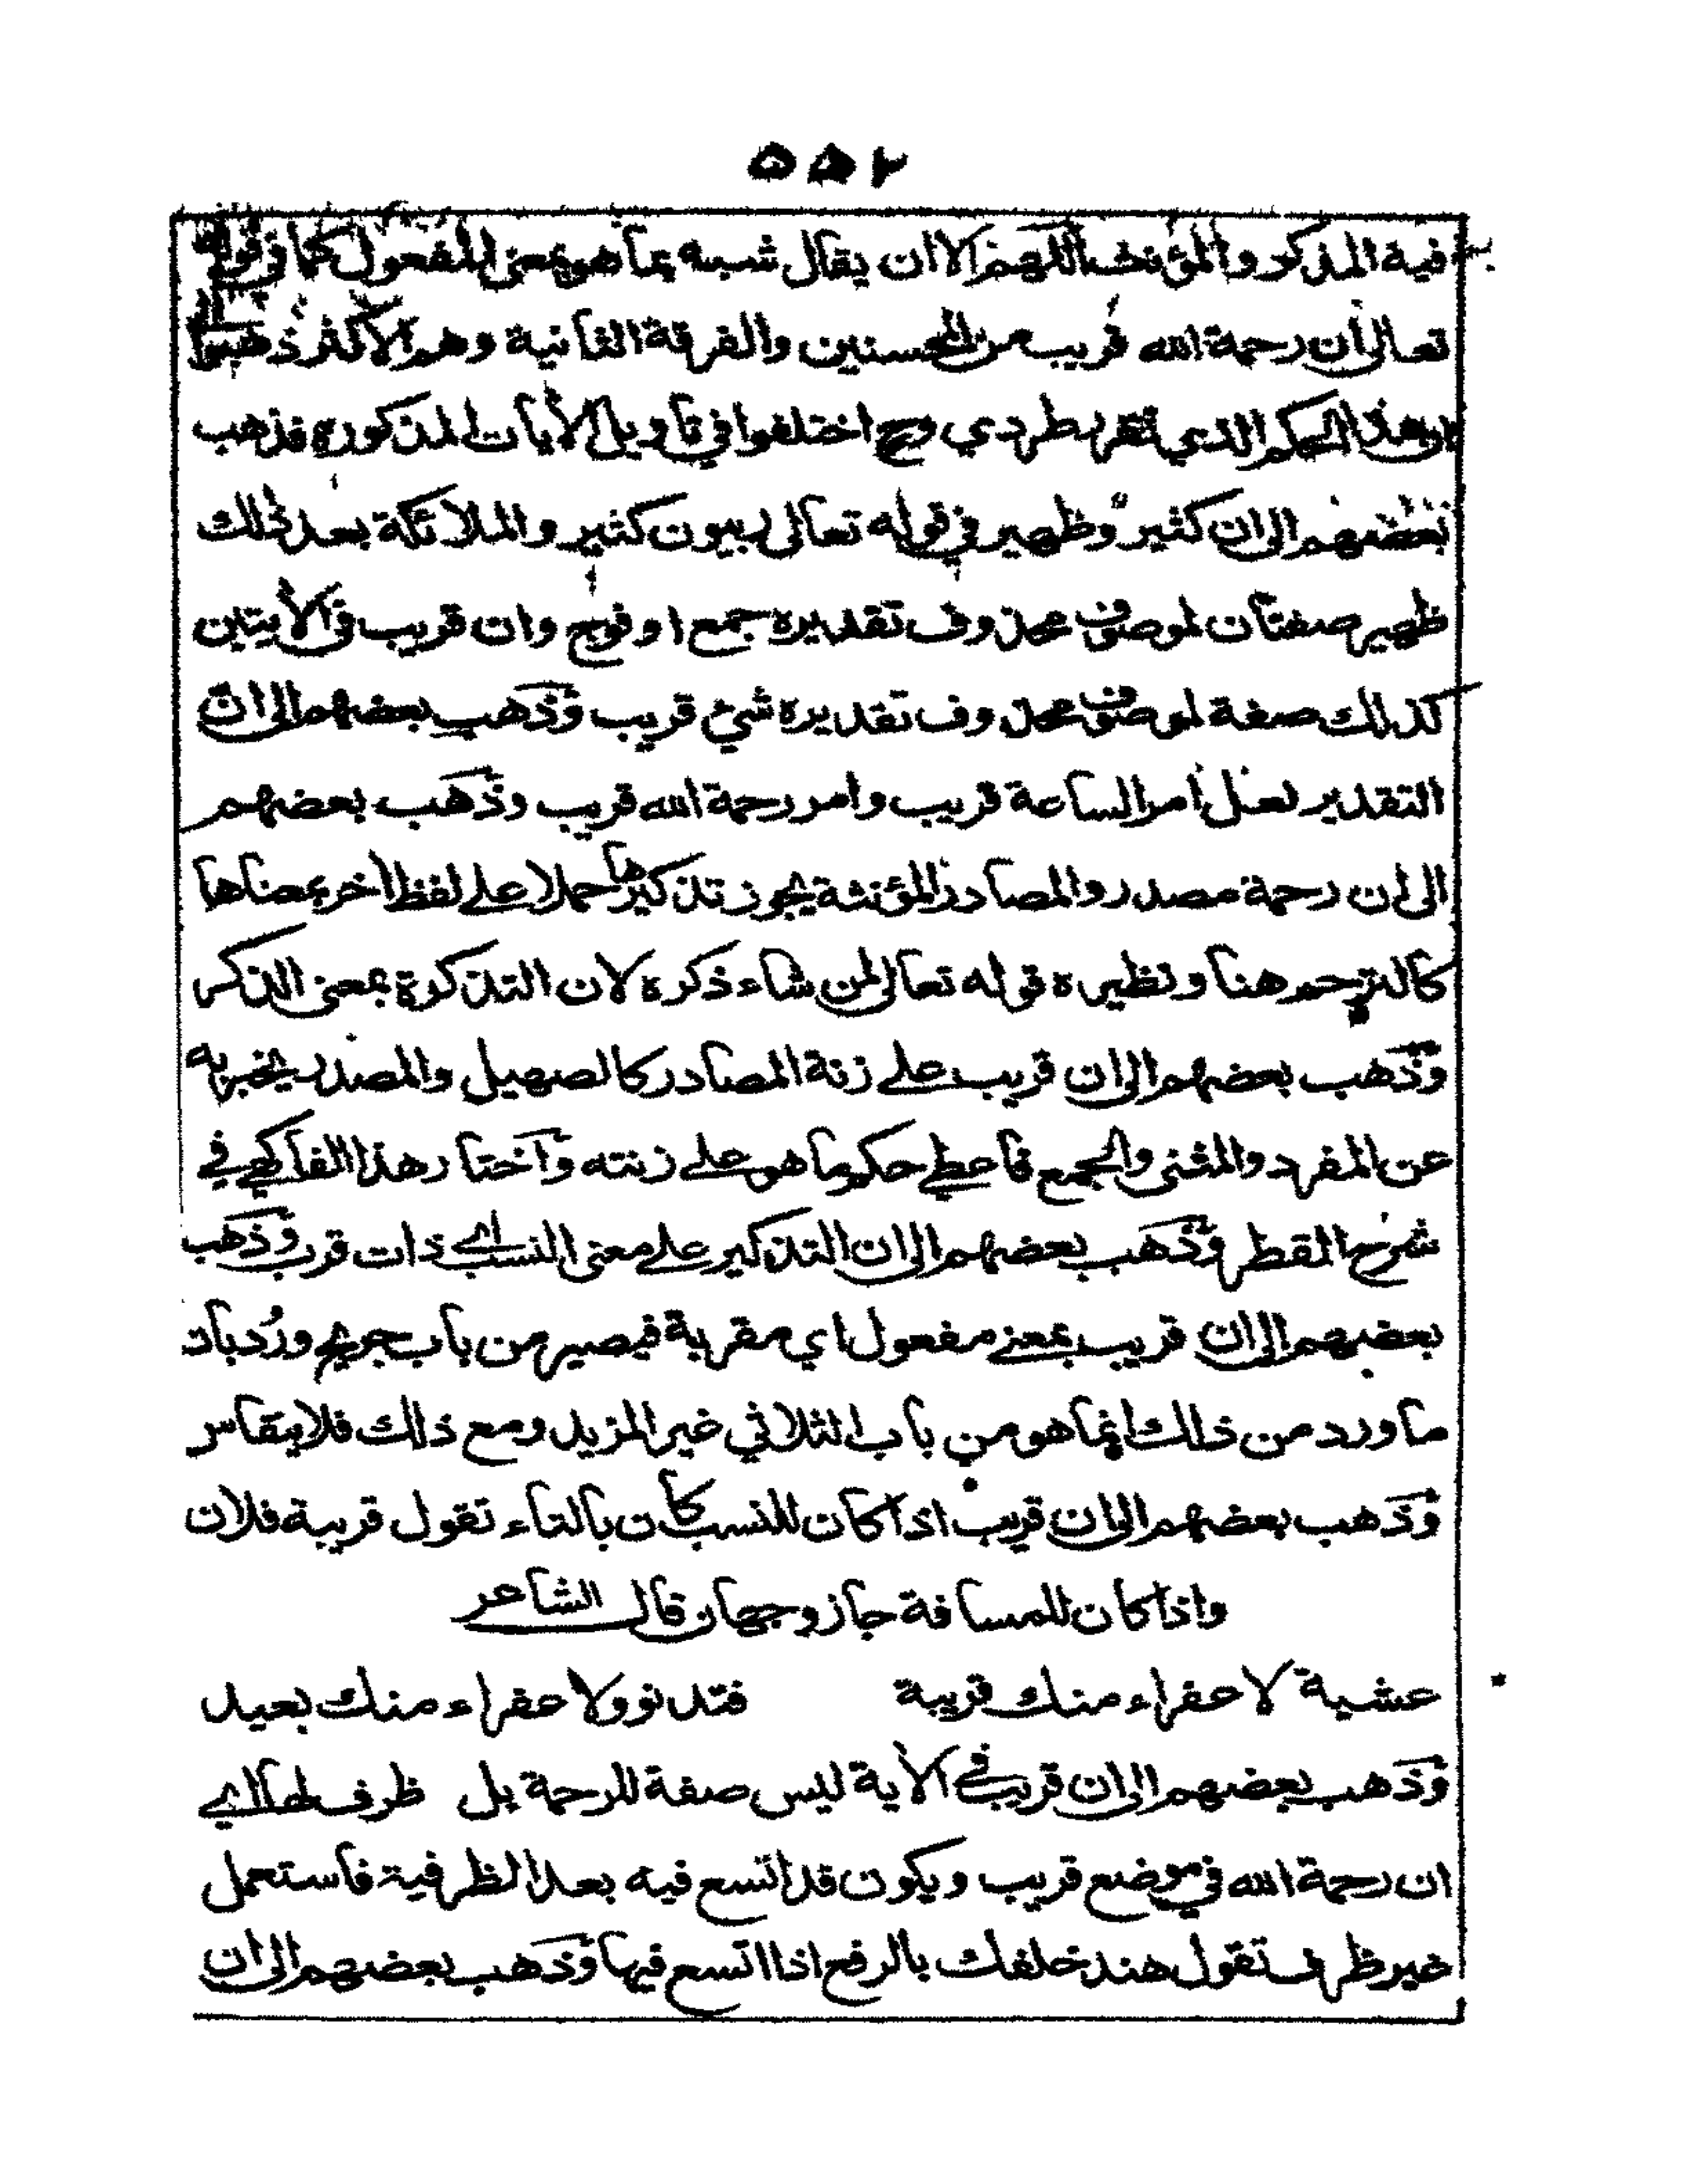 ٥٥٢
فيه المذكر والمؤنث اللهم الا ان يقال شبه بما هو بمعنى المفعول كما في قوله
تعالى ان رحمة الله قريب من المحسنين والفرقة الثانية وهم الاكثر ذهبوا
الى هذا الحكم الذي تقرر طردي وح اختلفوا في تأويل الأيات المذكورة فذهب
بعضهم الى ان كثير وظهير في قوله تعالى ربيون كثير والملائكة بعد ذلك
ظهير صفتان لموصوف محذوف تقديره جمع او فوج وان قريب في الأيتين
كذلك صفة لموصوف محذوف تقديره شئ قريب وذهب بعضهم الى ان
التقدير لعل أمر الساعة قريب وامر رحمة الله قريب وذهب بعضهم
الى ان رحمة مصدر والمصادر المؤنثة يجوز تذكيرها حملا على لفظ اخر بمعناها
كالترحم هنا ونظيره قوله تعالى لمن شاء ذكره لان التذكرة بمعنى الذكر
وذهب بعضهم الى ان قريب على زنة المصادر كالصهيل والمصدر يخبر به
عن المفرد والمثنى والجمع فاعطي حكم ما هو على زنته واختار هذا الفاكهي في
شرح القطر وذهب بعضهم الى ان التذكير على معنى النسب اي ذات قرب وذهب
بعضهم الى ان قريب بمعنى مفعول اي مقربة فيصير من باب جريح ورُد بان
ما ورد من ذلك انما هو من باب الثلاثي غير المزيد ومع ذلك فلا ينقاس
وذهب بعضهم الى ان قريب اذا كان للنسب كان بالتاء تقول قريبة فلان
واذا كان للمسافة جاز وجهان قال الشاعر
عشية لا عفراء منك قريبة فتدنو ولا عفراء منك بعيد
وذهب بعضهم الى ان قريب في الأية ليس صفة للرحمة بل ظرف لها اي
ان رحمة الله في موضع قريب ويكون قد اتسع فيه بعد الظرفية فاستعمل
غير ظرف تقول هند خلفك بالرفع اذا اتسع فيها وذهب بعضهم الى ان